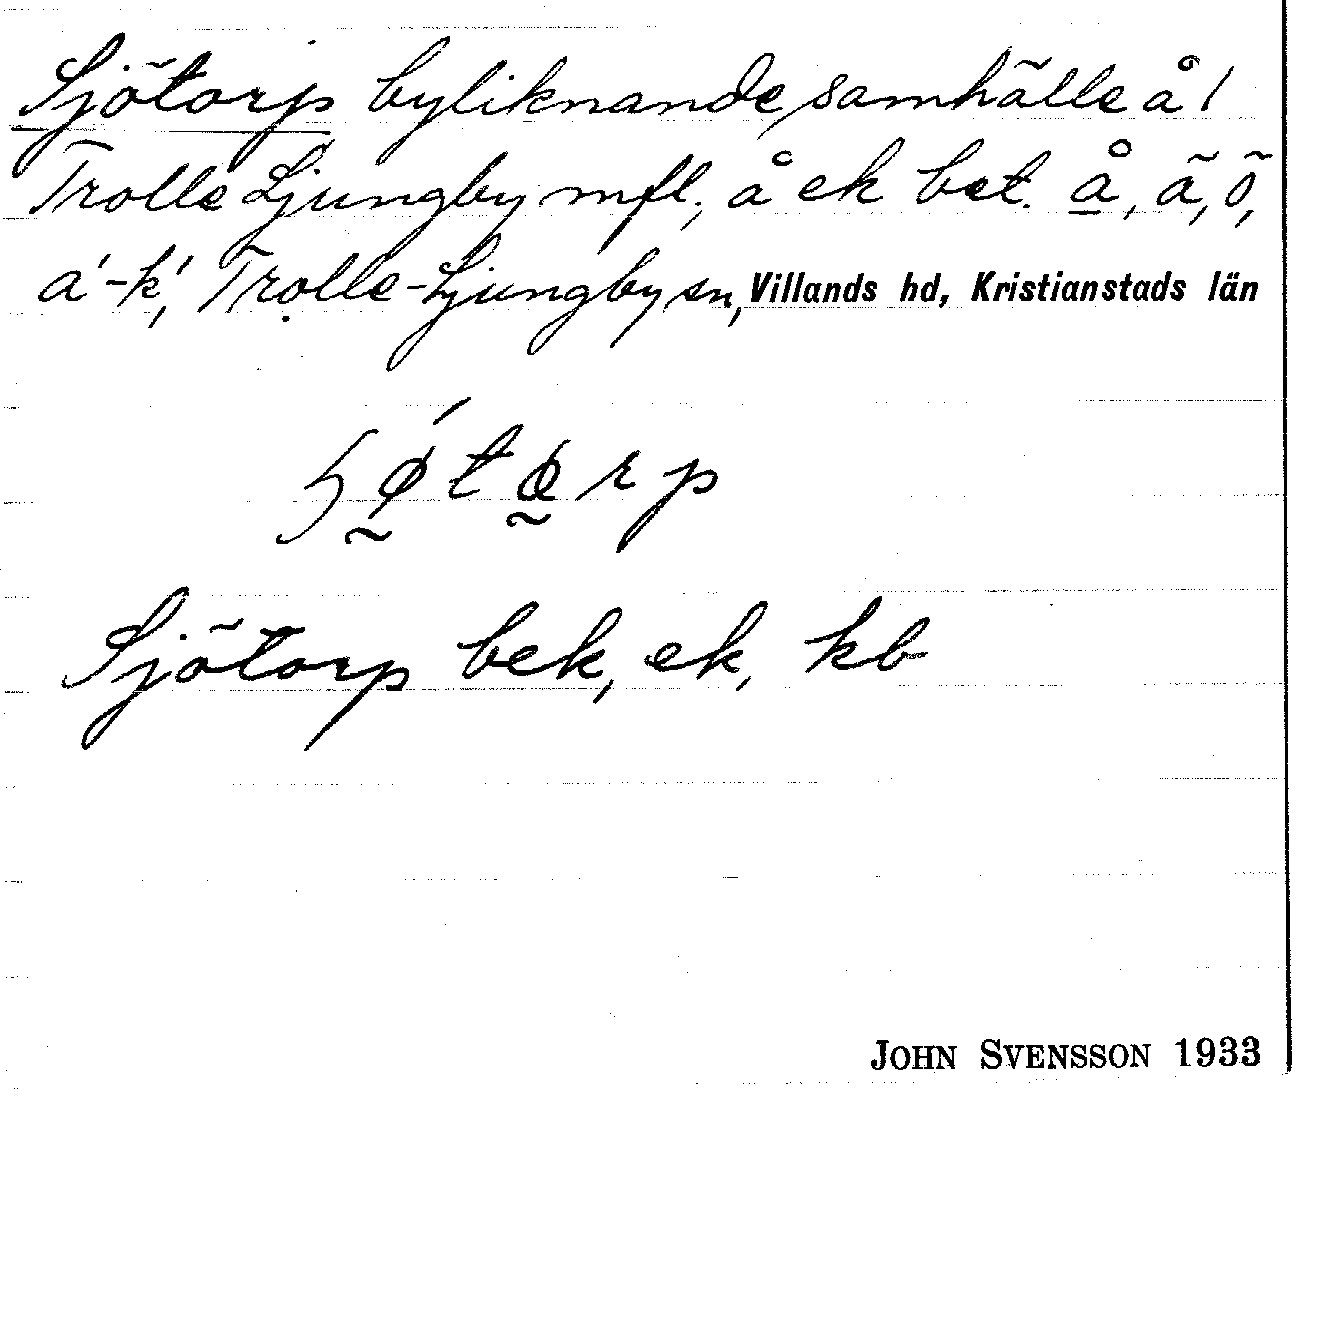 Sjötorp byliknande samhälle å 1
Trolle Ljungby mfl, å ek bet. å, ä, ö,
a'-k', Trolle-Ljungby sn, Villands hd, Kristianstads län
Sjötorp bek, ek, kb
JOHN SVENSSON 1933